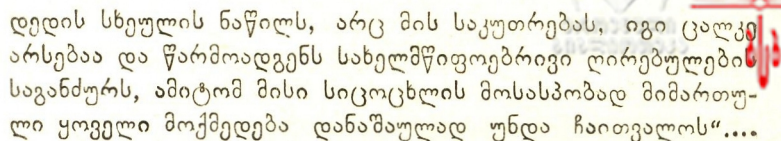 დედის სხეულის ნაწილს, არც მის საკუთრებას, იგი ცალკე
არსებაა და წარმოადგენს სახელმწიფოებრივი ღირებულების
საგანძურს, ამიტომ მისი სიცოცხლის მოსასპობად მიმართუ-
ლი ყოველი მოქმედება დანაშაულად უნდა ჩაითვალოს“....